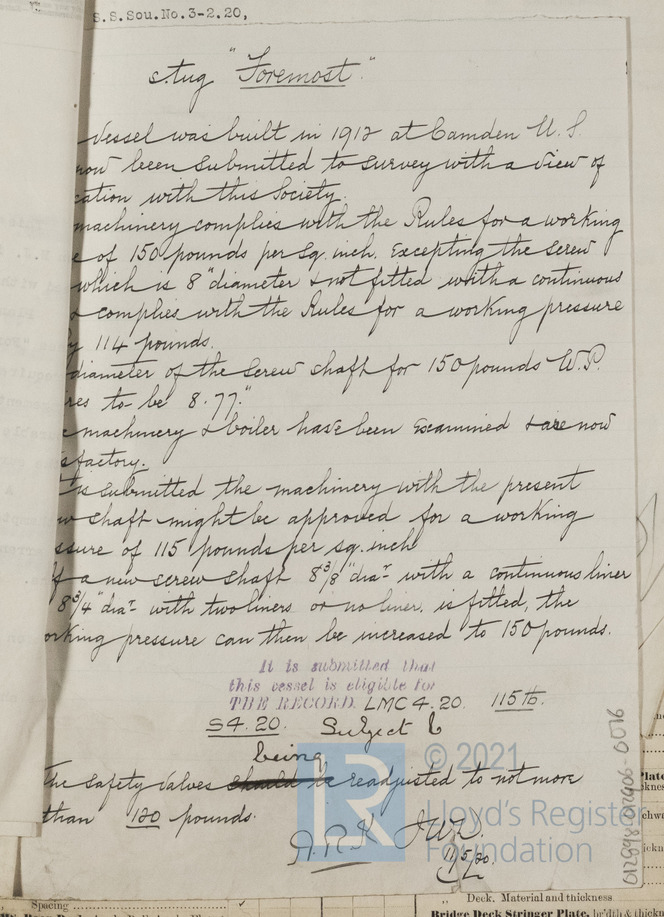 S.S.Sou.No.3-2.20,
s.tug "Foremost."
Vessel was built in 1912 at Camden U.S.
now been submitted to survey with a view of
cation with this Society.
machinery complies with the Rules for a working
e of 150 pounds per sq. inch. Excepting the screw
which is 8" diameter & not fitted with a continuous
& complies with the Rules for a working pressure
y 114 pounds.
diameter of the screw shaft for 150 pounds W.P.
res to be 8.77."
e machinery & boiler have been examined & are now
sfactory.
t is submitted the machinery with the present
w shaft might be approved for a working
ssure of 115 pounds per sq. inch
If a new screw shaft 8 3/8" diar with a continuous liner
8 3/4" diar with two liners or no liner, is fitted, the
orking pressure can then be increased to 150 pounds.
It is submitted that
this vessel is eligible for
THE RECORD. LMC 4.20. 115 lb.
S4.20. Subject to
being
The safety valves should be readjusted to not more
than 120 pounds.
A.R.K JWL.
11/5/20.
© 2021
Lloyd's Register
Foundation
012898-012906-0016
Spacing
Deck. Material and thickness
Bridge Deck Stringer Plate, br'dth & thickn